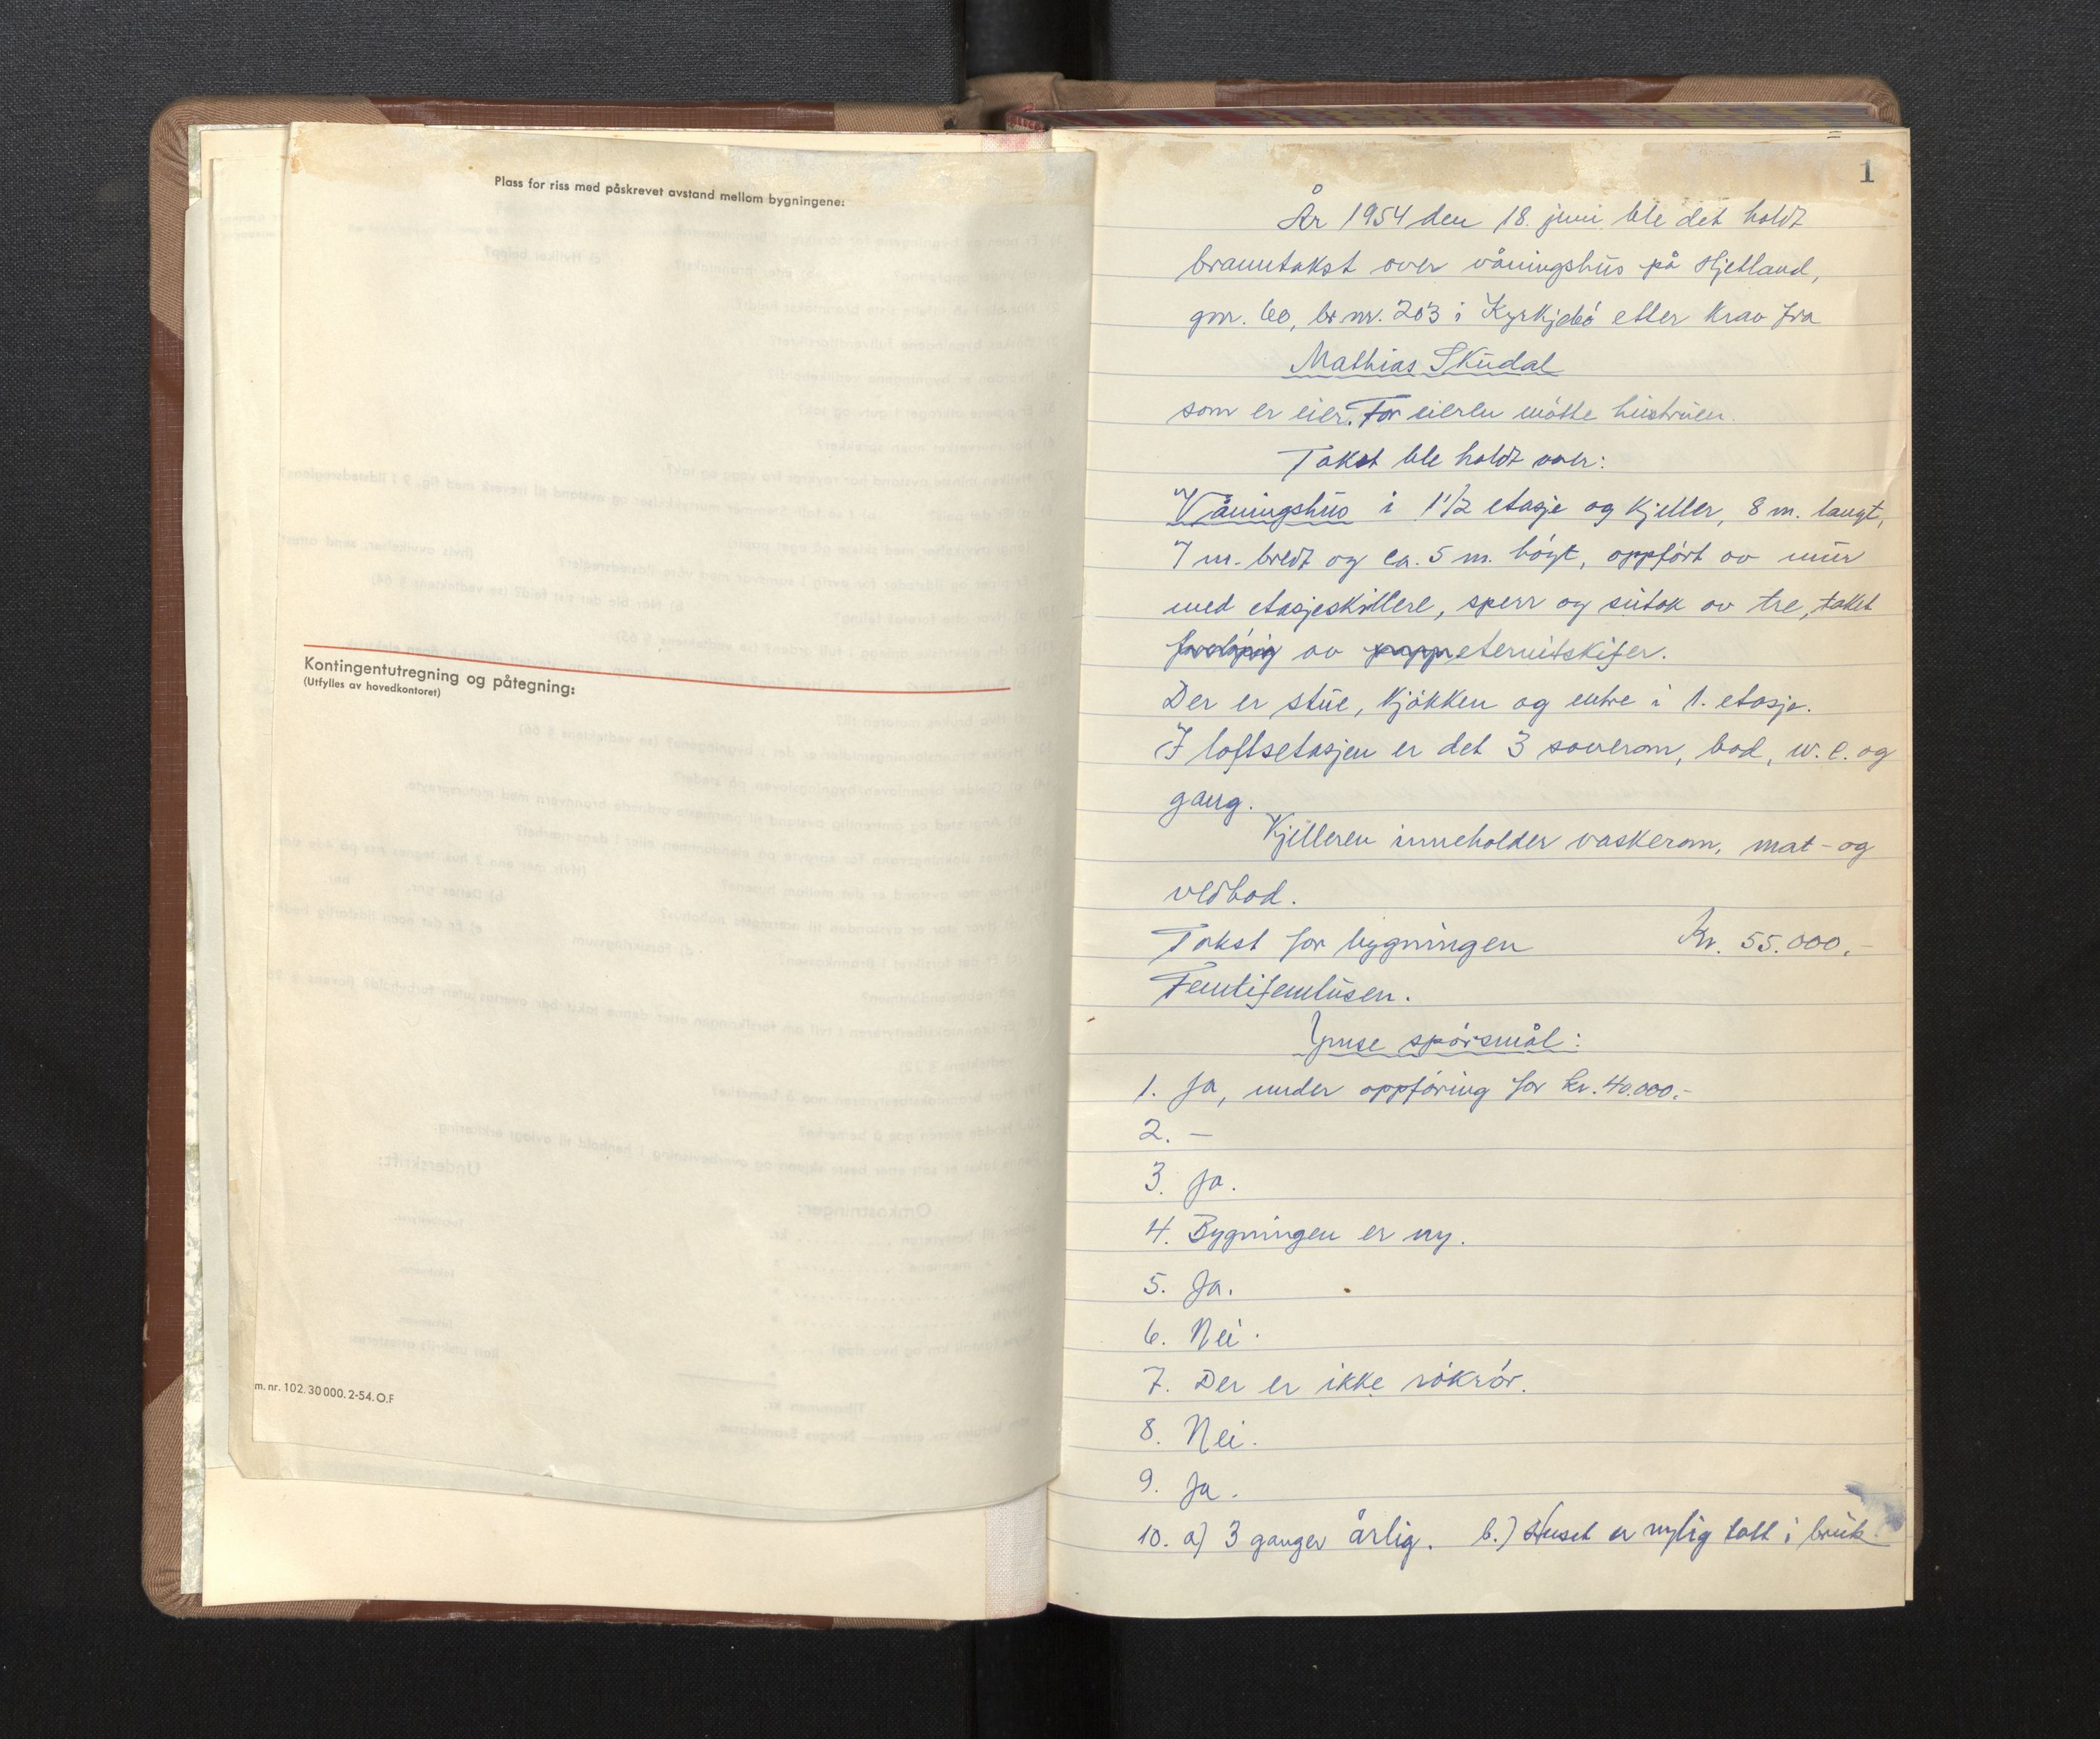 Plass for riss med påskrevet avstand mellom bygningene:
Kontingentutregning og påtegning:
(Utfylles av hovedkontoret)
m. nr. 102. 30 000. 2-54. O.F
1
År 1954 den 18. juni ble det holdt
branntakst over våningshus på Hjetland,
gnr. 60, br.nr. 203 i Kyrkjebó etter krav fra
Mathias Skudal
som er eier. For eieren mótte hustruen.
Takst ble holdt over:
Våningshus i 1 1/2 etasje og kjeller, 8 m. langt,
7 m. bredt og ca. 5 m. hógt, oppfórt av mur
med etasjeskillere, sperr og sutak av tre, taket
av eternitskifer.
Der er stue, kjókken og entre i 1. etasje.
I loftsetasjen er det 3 soverom, bad, w.c. og
gang.
Kjelleren inneholder vaskerom, mat- og
vedbod.
Takst for bygningen Kr. 55.000.-
Femtifemtusen.
Ymse spórsmål:
1. Ja, under oppfóring for kr. 40.000.-
2. —
3. Ja.
4. Bygningen er ny.
5. Ja.
6. Nei.
7. Der er ikke rókrór.
8. Nei.
9. Ja.
10. a) 3 ganger årlig. b.) Huset er nylig tatt i bruk.